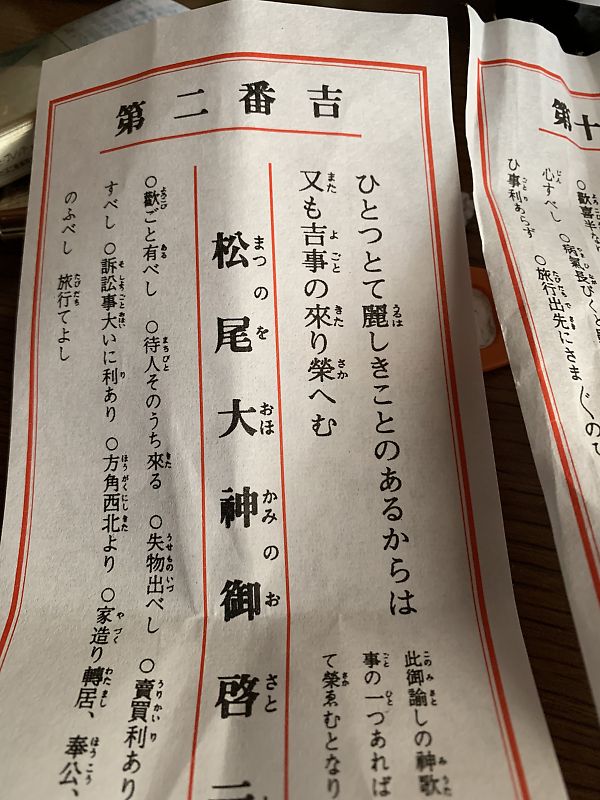 第二番吉
ひとつとて麗しきことのあるからは
又も吉事の來り榮へむ
此御諭しの神歌
事の一つあれば
て榮ゑむとなり
松尾大神御啓
○歡ごと有べし ○待人そのうち來る ○失物出べし ○賣買利あり
すべし ○訴訟事大いに利あり ○方角西北より ○家造り轉居、奉公、
のふべし 旅行てよし
第十
○歡喜半
心すべし ○病氣長びくと
ひ事利あらず ○旅行出先にさま〴〵の